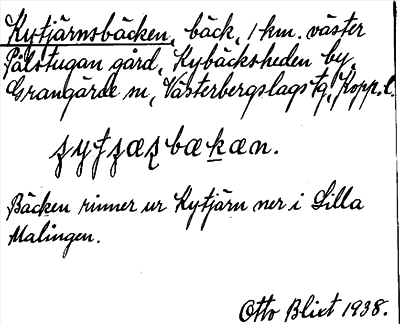 Kytjärnsbäcken, bäck, 1 km. väster
Pålstugan gård, Kybäcksheden by,
Grangärde sn, Västerbergslags tg, Kopp. l.
Bäcken rinner ur Kytjärn ner i Lilla
Malingen.
Otto Blixt 1938.